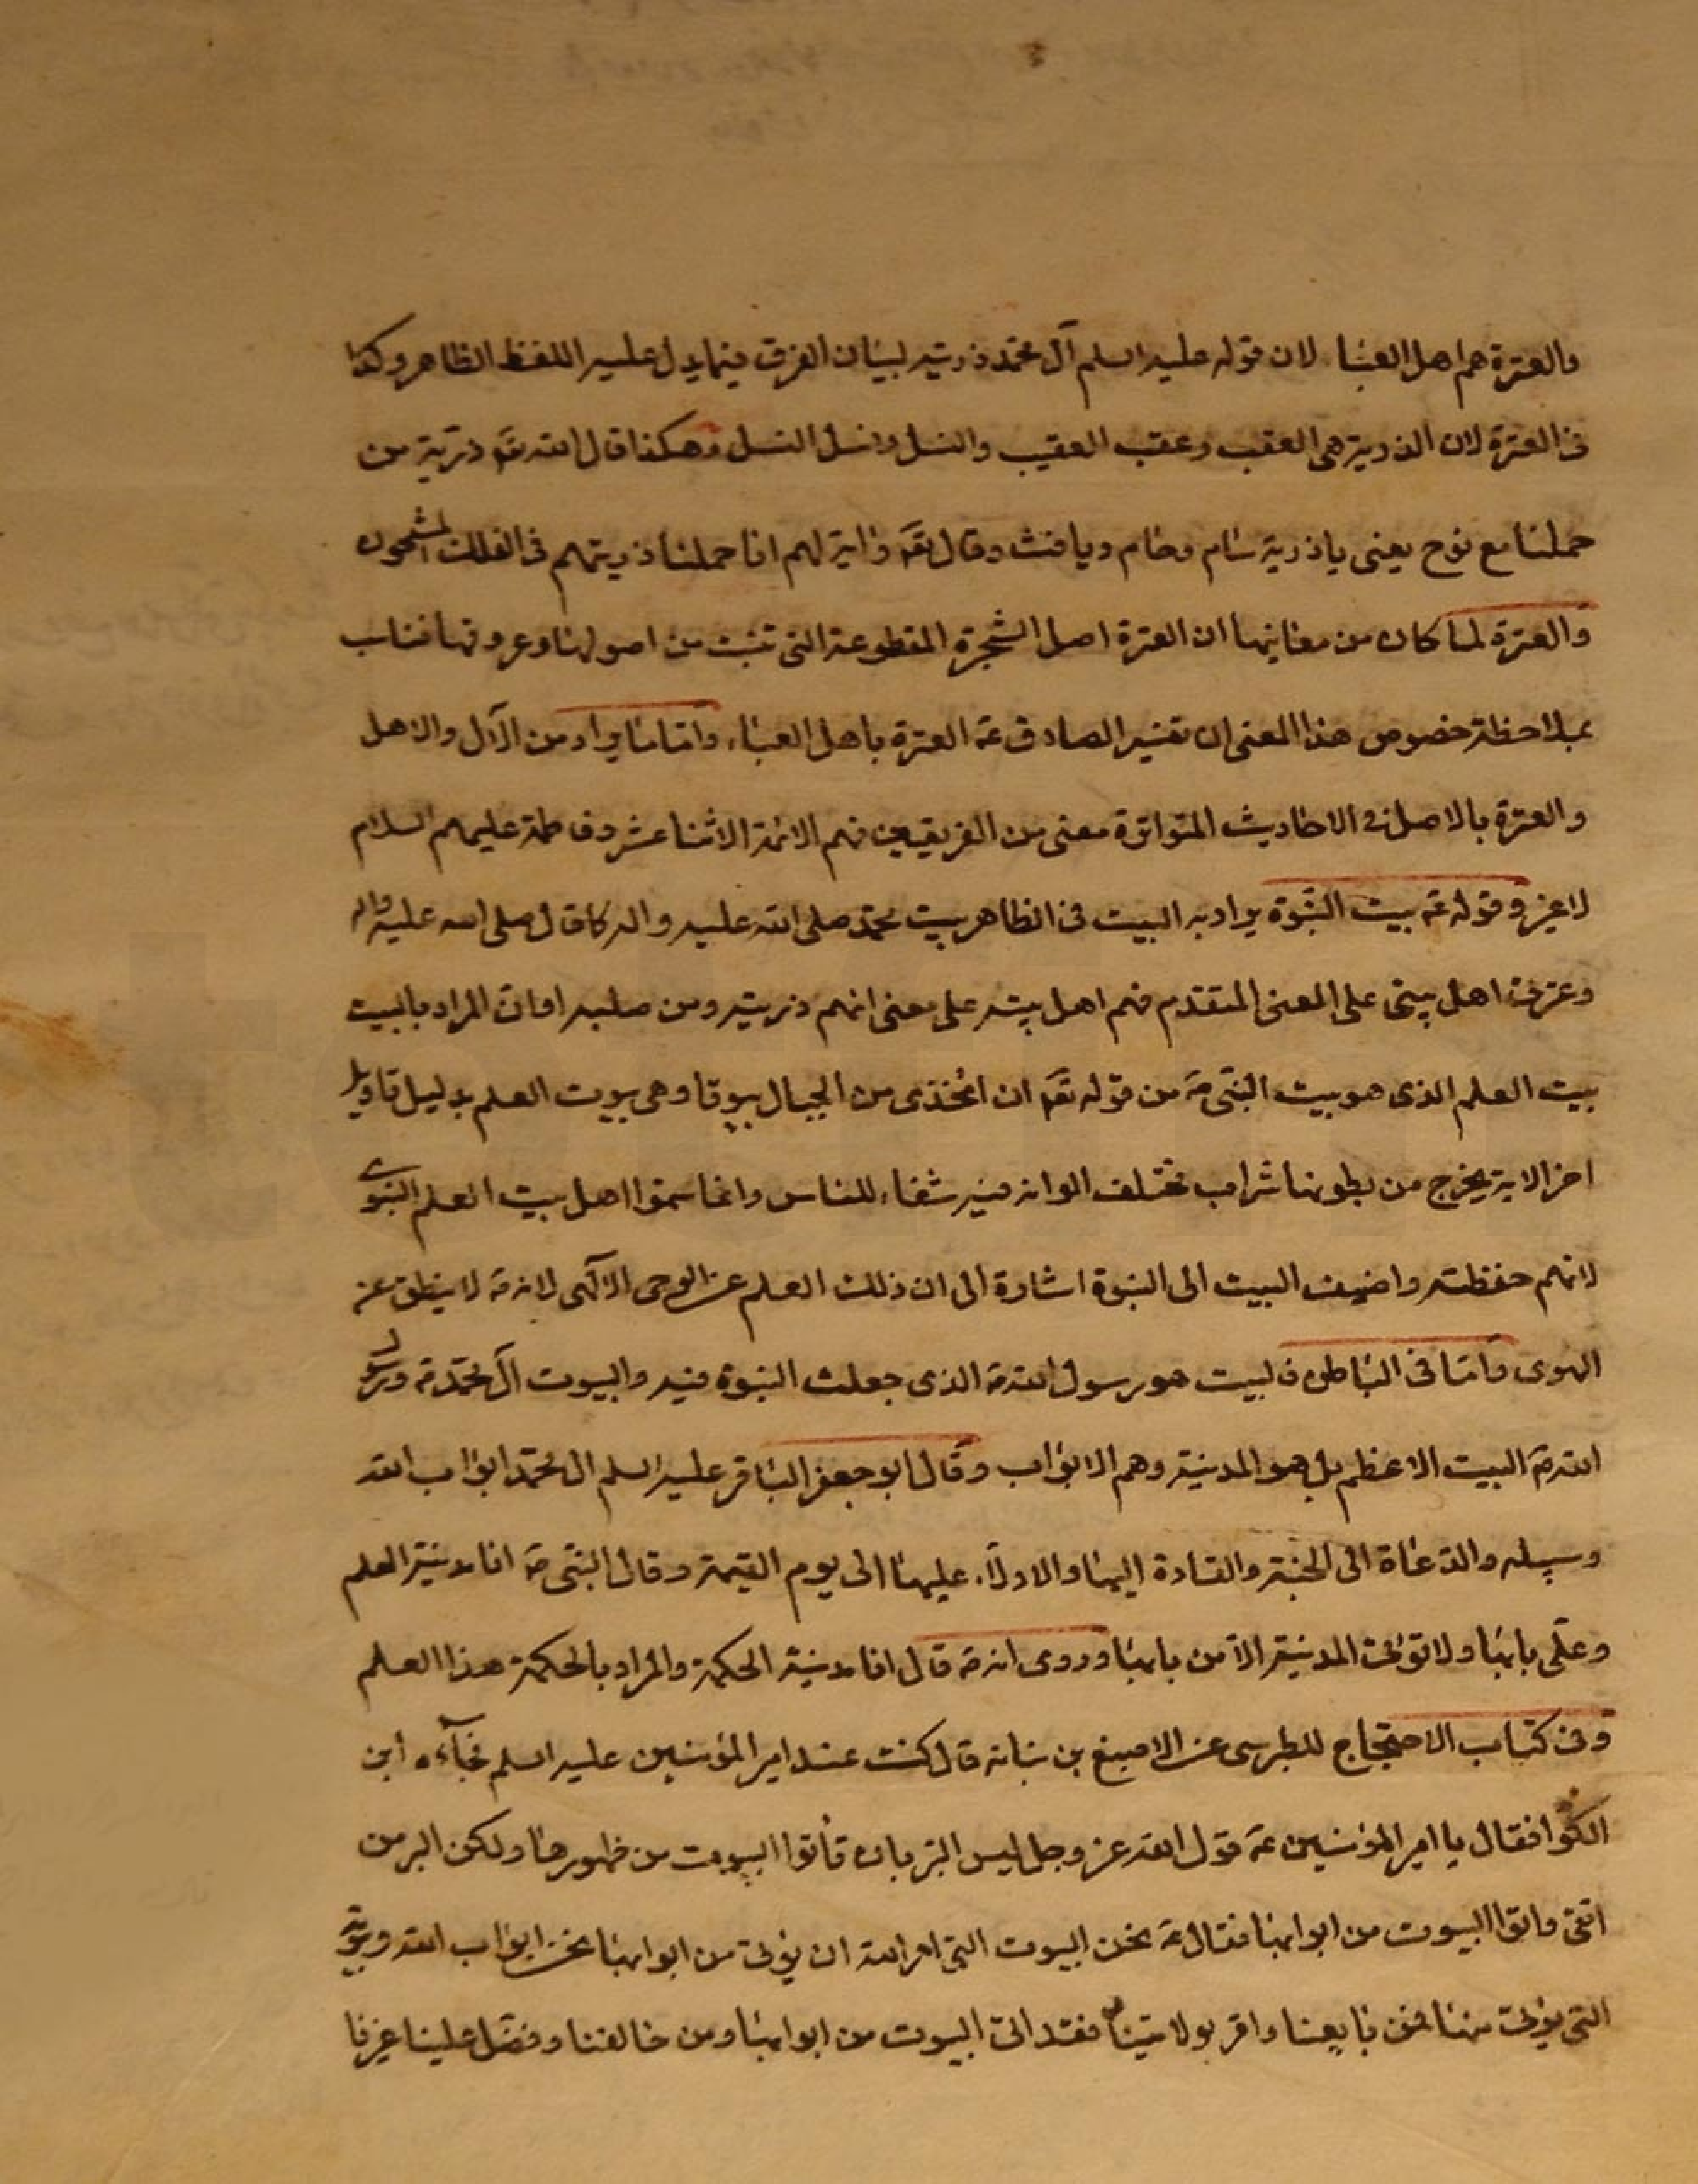 والعترة هم اهل العبا لان قوله عليه السلم آل محمد ذريته لبيان الفرق فيما يدل عليه اللفظ الظاهر وكذا
فى العترة لان الذرية هى العقب وعقب العقيب والنسل ونسل النسل وهكذا قال الله تع ذرية من
حملنا مع نوح يعنى ياذرية سام وحام ويافث وقال تع واية لهم انا حملنا ذريتهم فى الفلك المشحون
والعترة لما كان من معانيها ان العترة اصل الشجرة المقطوعة التى تنبت من اصولها وعروقها فناب
بملاحظة خصوص هذا المعنى ان تفسير الصادق ع العترة باهل العباء واما ما يراد من الآل والاهل
والعترة بالاصل فى الاحاديث المتواترة معنى من الفريقين فهم الائمة الاثنا عشر وفاطمة عليهم السلام
لا غير وقوله ع بيت النبوة يراد به البيت فى الظاهر بيت محمد صلى الله عليه واله كما قال صلى الله عليه واله
وعترتى اهل بيتى على المعنى المتقدم فهم اهل بيته على معنى انهم ذريته ومن صلبه او ان المراد بالبيت
بيت العلم الذى هو بيت النبى ص من قوله تع ان اتخذى من الجبال بيوتا وهى بيوت العلم بدليل تاويل
اخر الاية يخرج من بطونها شراب مختلف الوانه فيه شفاء للناس وانما سموا اهل بيت العلم النبوى
لانهم حفظته واضيف البيت الى النبوة اشارة الى ان ذلك العلم عن الوحى الالهى لانه ص لا ينطق عن
الهوى واما فى الباطن فالبيت هو رسول الله ص الذى جعلت النبوة فيه والبيوت آل محمد ص ورسول
الله ص البيت الاعظم بل هو المدينة وهم الابواب وقال ابو جعفر الباقر عليه السلم ال محمد ابواب الله
وسبيله والدعاة الى الجنة والقادة اليها والادلاء عليها الى يوم القيمة وقال النبى ص انا مدينة العلم
وعلى بابها ولا تؤتى المدينة الا من بابها وروى انه ص قال انا مدينة الحكمة والمراد بالحكمة هذا العلم
وفى كتاب الاحتجاج للطبرسى عن الاصبغ بن نباته قال كنت عند امير المؤمنين عليه السلم فجآءه ابن
الكوا فقال يا امير المؤمنين ع قول الله عز وجل ليس البر بان تأتوا البيوت من ظهورها ولكن البر من
اتقى واتوا البيوت من ابوابها فقال ع نحن البيوت التى امر الله ان يؤتى من ابوابها نحن ابواب الله وبيوته
التى يؤتى منها فمن تابعنا واقر بولايتنا فقد اتى البيوت من ابوابها ومن خالفنا وفضل علينا غيرنا